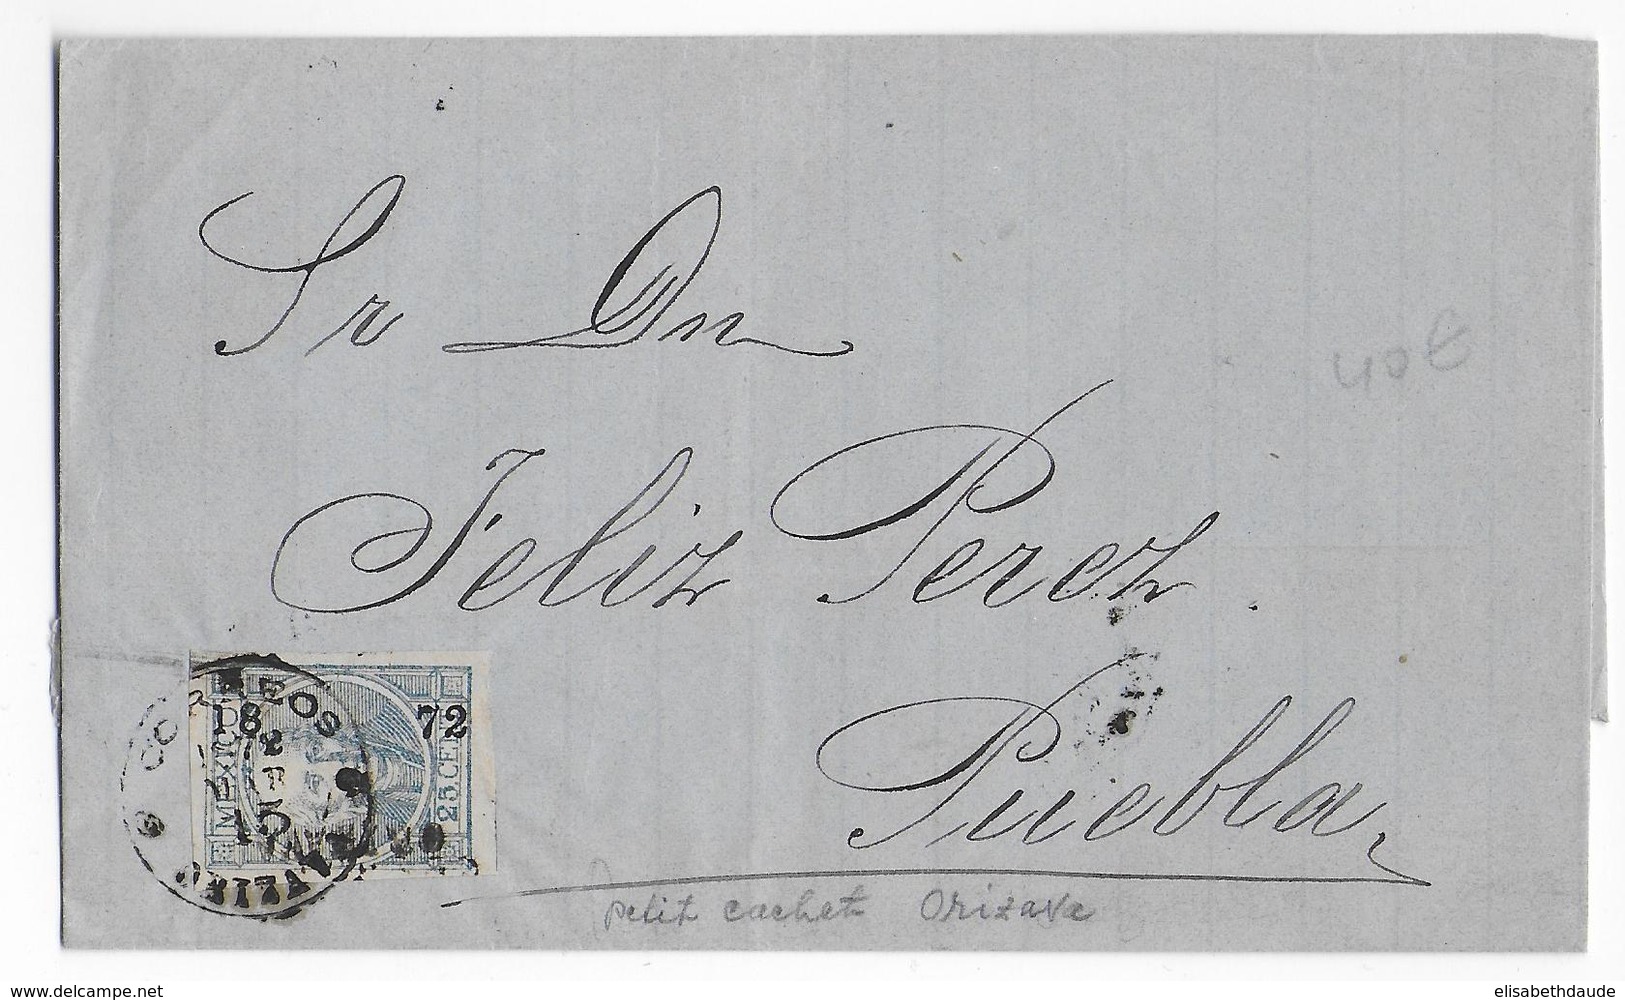 Sr Dn
40€
Feliz Perez.
Puebla,
CORREOS
18 72
MEXICO
25. CEN
15
ORIZAVA
petit cachet Orizava
www.delcampe.net
elisabethdaude